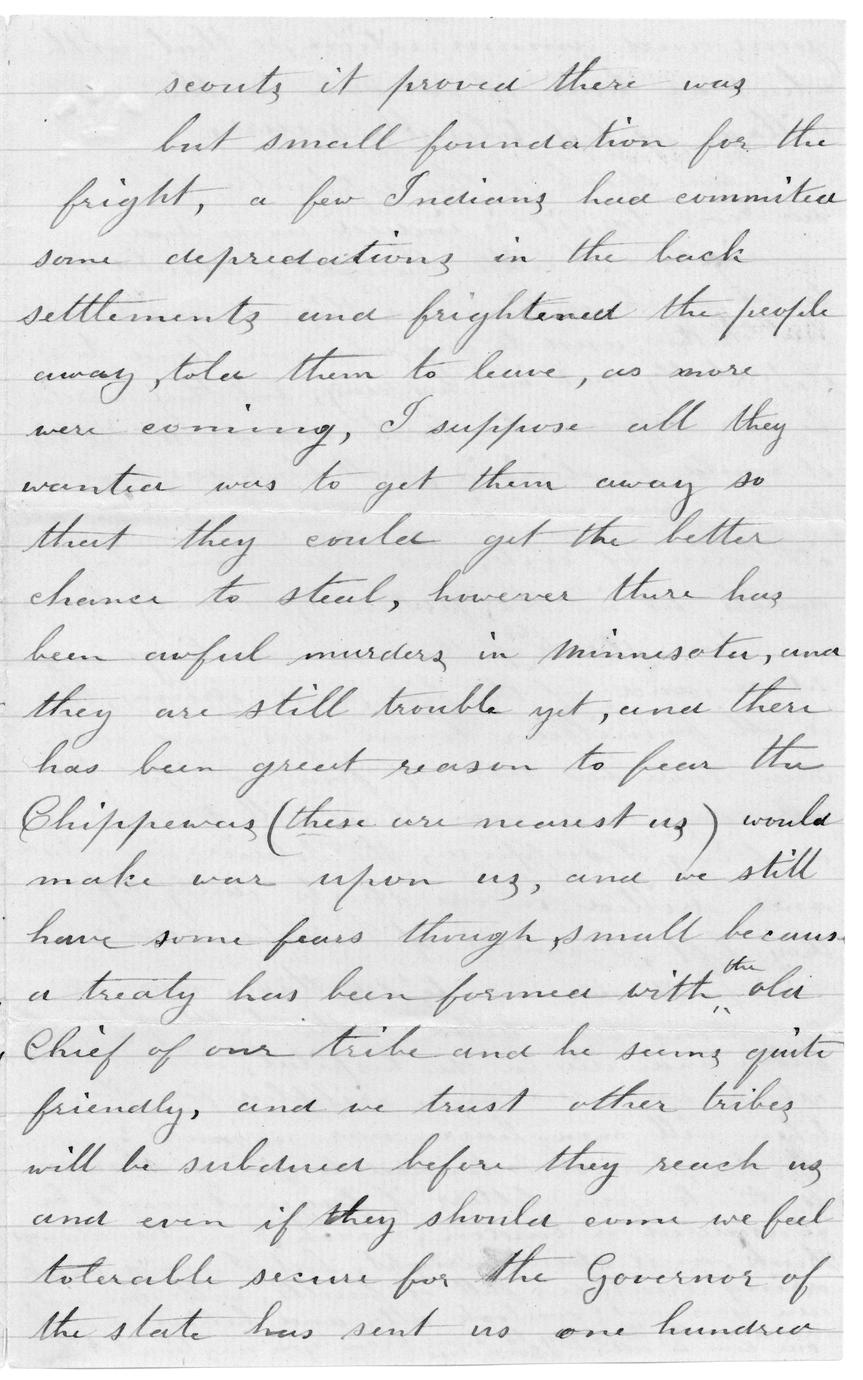 scouts it proved there was
but small foundation for the
fright, a few Indians had commited
some depredations in the back
settlements and frightened the people
away, told them to leave, as more
were coming, I suppose all they
wanted was to get them away so
that they could get the better
chance to steal, however there has
been awful murders in Minnesota, and
they are still trouble yet, and there
has been great reason to fear the
Chippewas (these are nearest us) would
make war upon us, and we still
have some fears though, small because
a treaty has been formed with the old
Chief of our tribe and he seems quite
friendly, and we trust other tribes
will be subdued before they reach us
and even if they should come we feel
tolerable secure for the Governor of
the state has sent us one hundred